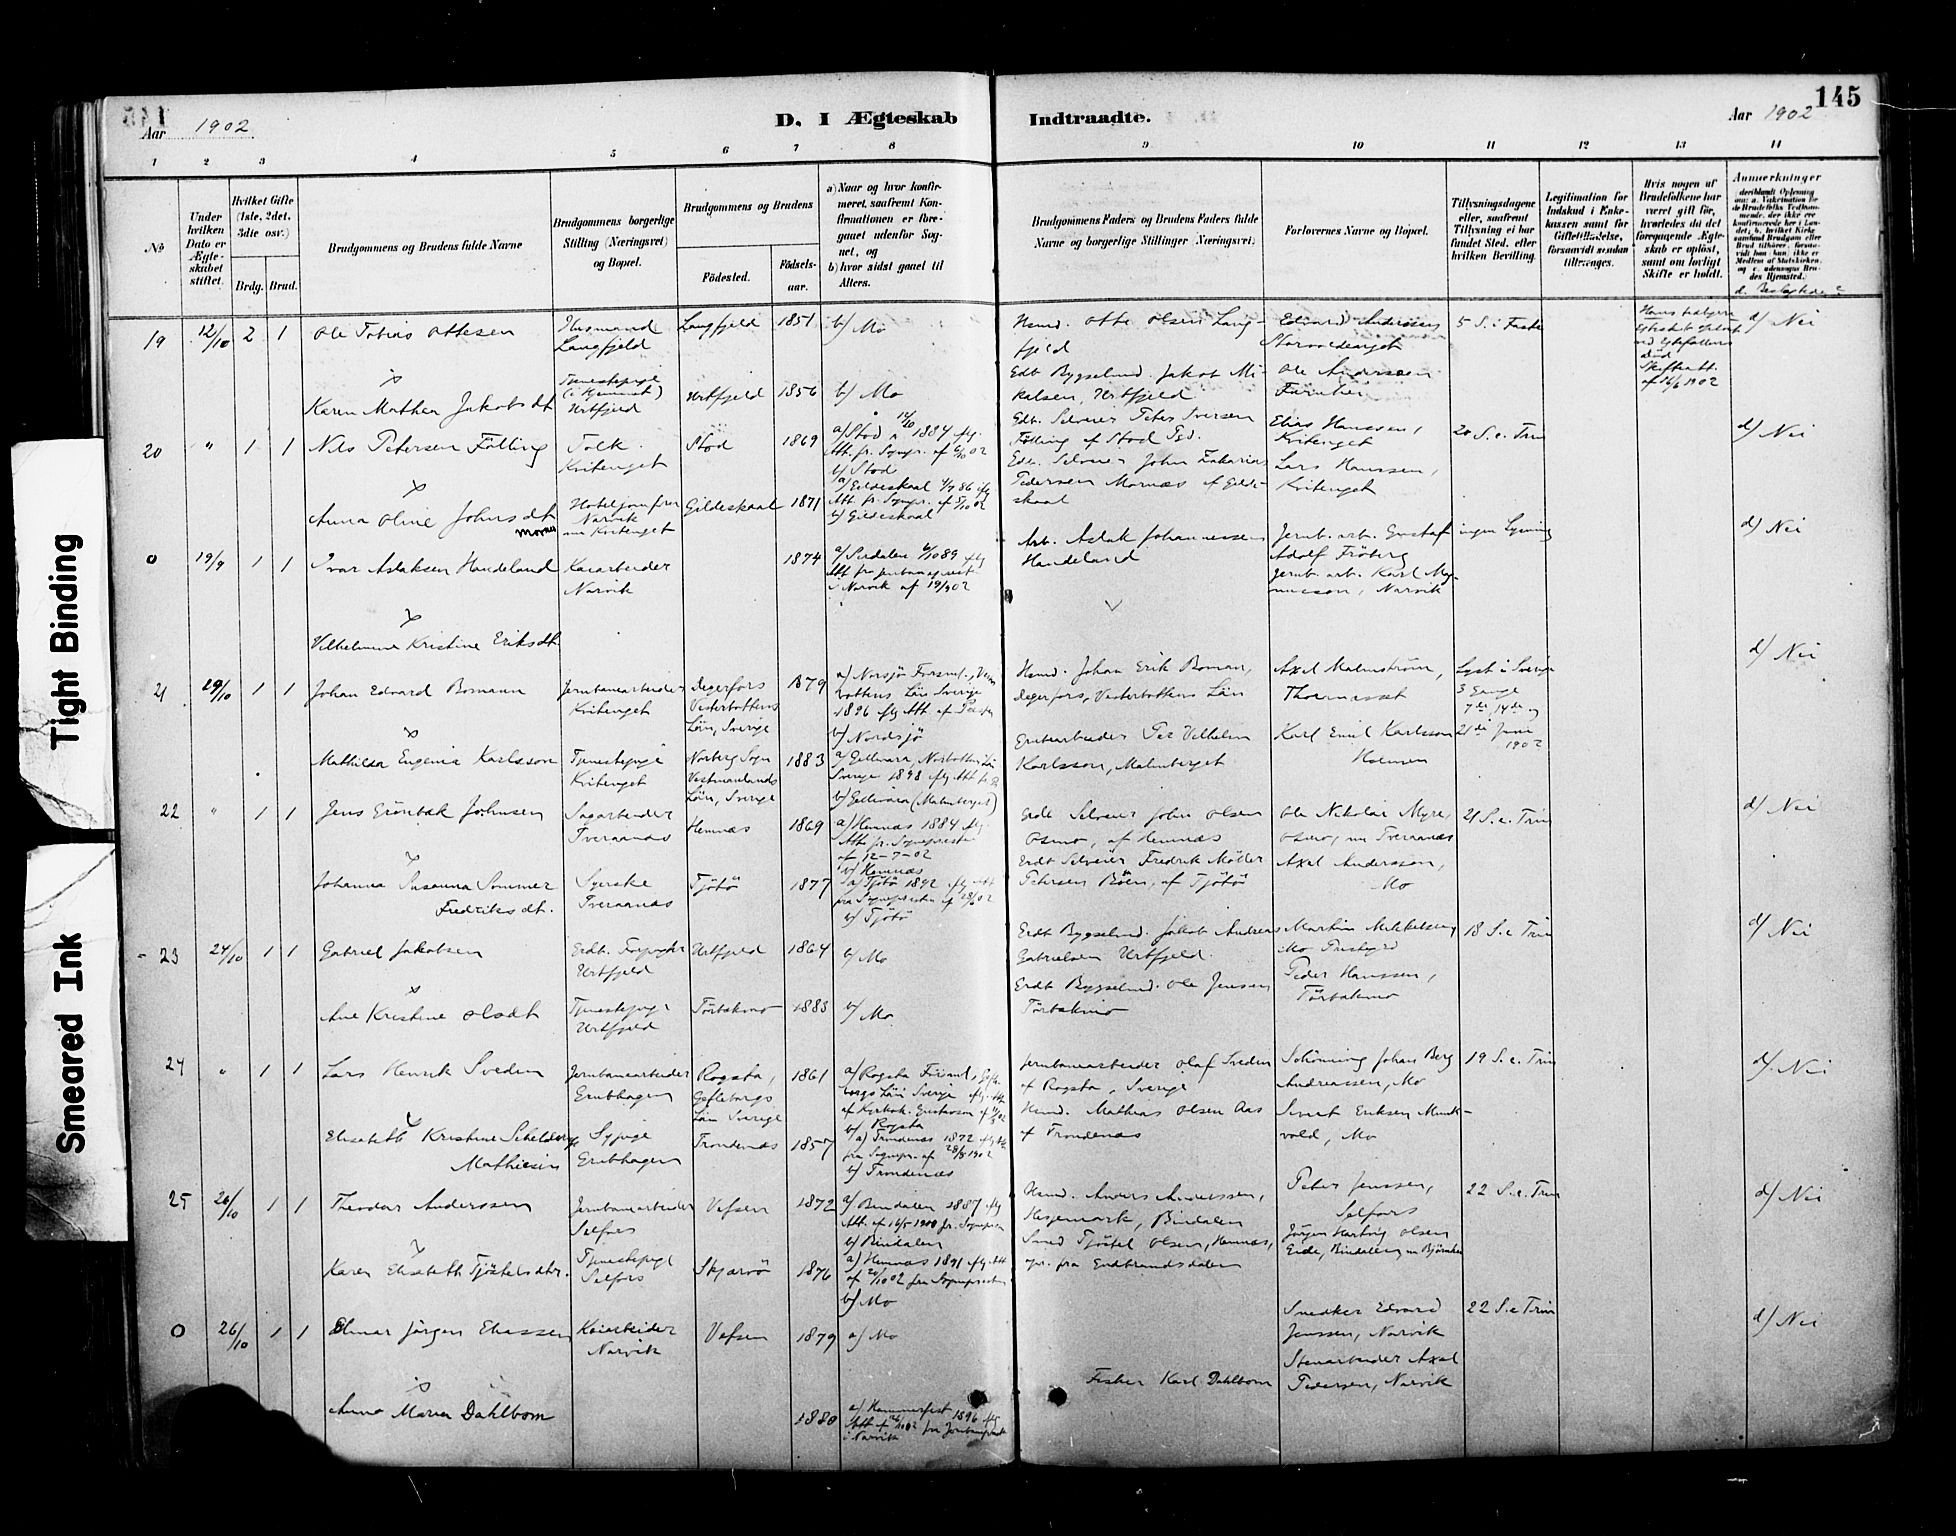 145
Aar 1902
D. I Ægteskab Indtraadte.
Aar 1902
1 2 3 4 5 6 7 8 9 10 11 12 13 14
No
Under hvilken Dato er Ægteskabet stiftet.
Hvilket Gifte (1ste, 2det, 3die osv.)
Brdg. Brud.
Brudgommens og Brudens fulde Navne
Brudgommens borgerlige Stilling (Næringsvei) og Bopæl.
Brudgommens og Brudens
Födested.
Födselsaar.
a) Naar og hvor konfirmeret, saafremt Konfirmationen er foregaaet udenfor Sognet, og
b) hvor sidst gaaet til Alters.
Brudgommens Faders og Brudens Faders fulde Navne og borgerlige Stillinger (Næringsvei)
Forlovernes Navne og Bopæl.
Tillysningsdagene eller, saafremt Tillysning ei har fundet Sted, efter hvilken Bevilling.
Legitimation for Indskud i Enkekassen samt for Giftetilladelse, forsaavidt saadan tiltrænges.
Hvis nogen af Brudefolkene har været gift för, hvorledes da det foregaaende Ægteskab er oplöst, samt om lovligt Skifte er holdt.
Anmærkninger
19 12/10 2 1 Ole Tobias Ottesen
Husmand Langfjeld
Langfjeld 1851 b/ Mo
Husmd. Otte Olsen Langfjeld
Edvard Anderssen
5 S. i Faste
ved Ægtefællens Död
Skifteatt. af 16/6 1902
d/ Nei
Karen Mathea Jakobsdt
Tjenestepige (i Hjemmet) Urtfjeld
Urtfjeld 1856 b/ Mo
Edt. Bygselmd. Jakob Mikalsen, Urtfjeld
Ole Anderssen
20 " 1 1 Nils Petersen Fölling
Tolk. Kvitenget
Stod 1869
a/ Stod 1884 eflg. Att. fr. Sognpr. af 6/10 02
b/ Stod
Edt. Selveier Peter Iversen Fölling af Stod Pgd.
Elias Hanssen, Kvitenget
20 S. e. Trin
d/ Nei
Anna Oline Johnsdt
Hoteljomfru Narvik nu Kvitenget
Gildeskaal 1871
a/ Gildeskaal 86 eflg Att. fr. Sognpr. af 7/10 02
b/ Gildeskaal
Edt. Selveier John Zakarias Pedersen Mornæs af Gildeskaal
Lars Hanssen, Kvitenget
0 19/9 1 1 Ivar Aslaksen Handeland
Kaiarbeider Narvik
1874
a/ Sirdalen 89 eflg Att fra i Narvik af 19/9 02
Arb. Aslak Johannessen Handeland
Jernb. arb. Gustaf Adolf Fröberg
Jernb. arb. Karl Magnusson, Narvik
ingen Lysning
d/ Nei
Vilhelmine Kristine Eriksdt.
21 29/10 1 1 Johan Edvard Bomann
Jernbanearbeider Kvitenget
Degerfors Vesterbottens Län, Sverige
1879
a/ Norsjö Försml., Vesterbottens Län Sverige 1896 eflg Att. af
b/ Nordsjö
Husmd. Johan Erik Boman, Degerfors, Vesterbottens Län
Axel Malmström,
Lyst i Sverige 3 Gange 7de, 14de og 21de Juni 1902
d/ Nei
Mathilda Eugenia Karlsson
Tjenestepige Kvitenget
Norberg Sogn Vestmanlands Län, Sverige
1883
a/ Gellivara, Norbottens Län Sverige 1898 eflg Att
b/ Gellivara (Malmberget)
Grubearbeider Per Vilhelm Karlsson, Malmberget
Karl Emil Karlsson Holmen
22 " 1 1 Jens Grönbæk Johnsen
Sagarbeider Tveraanæs
Hemnæs 1869
a/ Hemnæs 1884 eflg. Att. fr. Sognepresten af 12-7-02
b/ Hemnæs
Selveier John Olsen Osmo, af Hemnæs
Ole Nikolai Myre, Osmo, nu Tveraanæs
21 S. e. Trin
d/ Nei
Johanna Susanna Sommer Fredriksdt.
Syerske Tveraanæs
Tjötö 1877
a/ Tjötö 1892 eflg Att fra Sognepresten af
b/ Tjötö
Erdt Selveier Fredrik Möller Petersen Böen, af Tjötö
Axel Andersson, Mo
23 24/10 1 1 Gabriel Jakobsen
Urtfjeld
Urtfjeld 1864 b/ Mo
Erdt Bygselmd. Jakob Andreas Gabrielsen Urtfjeld.
Martin Mikkelsen, Mo Prestegrd
18 S. e Trin
d/ Nei
Ane Kristine Olsdt
Tjenestepige Urtfjeld
Törbækmo 1883 b/ Mo
Erdt Bygselmd. Ole Jensen Törbækmo
Peder Hanssen, Törbækmo
24 " 1 1 Lars Henrik Svedin
Jernbanearbeider Grubhagen
Rogsta, Gefleborgs Län Sverige
1861
a/ Rogsta Försml, Gefleborgs Län Sverige eflg. Att af Kyrkoh. Gustavson
b/ Rogsta
Jernbanearbeider Olaf Svedin af Rogsta, Sverige
Johan Berg Andreassen, Mo
19 S. e. Trin
d/ Nei
Elisabeth Kristine Mathiesen
Sypige Grubhagen
Trondenæs 1857
a/ Trondenæs 1872 eflg Att fra Sognpr. af 28/8 1902
b/ Trondenæs
Husmd. Mathias Olsen Aas af Trondenæs
Sivert Eriksen Munkvold, Mo
25 26/10 1 1 Theodor Anderssen
Jernbanearbeider Selfors
Vefsen 1872
a/ Bindalen 1887 eflg Att. af 16/5 1900 fr. Sognepresten
b/ Bindalen
Husmd. Anders Anderssen, Heggemark, Bindalen
Peter Jenssen, Selfors
22 S. e. Trin
d/ Nei
Karen Elisabeth Tjöstelsdtr.
Tjenestepige Selfors
Skjærvö 1876
a/ Hemnæs 1891 eflg Att af 20/10 02 fra Sognepresten
b/ Mo
Smed Tjöstel Olsen, Hemnæs, opr. fra Gudbrandsdalen
Jörgen Hartvig Olsen Eide, Bindalen
0 26/10 1 1 Elmar Jörgen Eliassen
Kaiarbeider Narvik
Vefsen 1879 a/ Mo
Snedker Edvard Jenssen, Narvik
22 S. e Trin
d/ Nei
Anna Maria Dahlbom
1880
a/ Hammerfest 1896 eflg Att af fra Jernbanepresten i Narvik
Fisker Karl Dahlbom
Stenarbeider Axel Pedersen, Narvik
Tight Binding
Smeared Ink